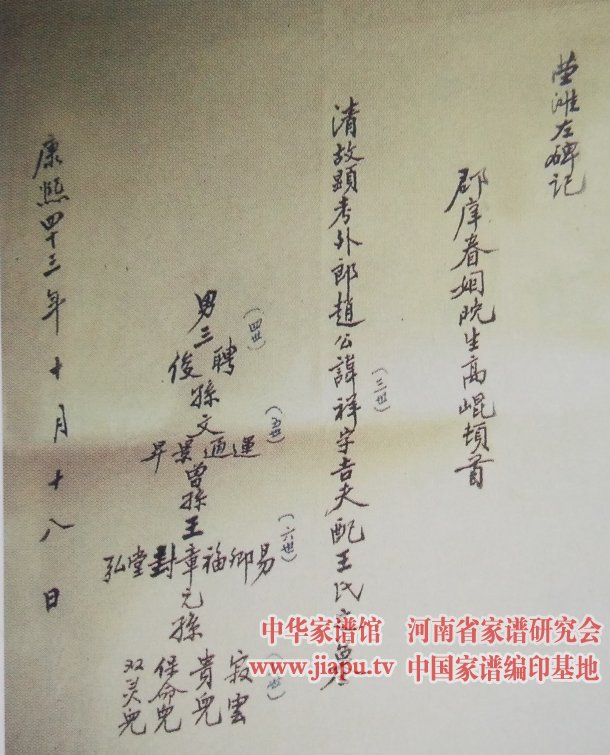 茔滩左碑记
郡庠眷姻晚生高崐頓首
清故顕考外郎趙公諱祥字吉夫配王氏之墓
(三世)
男三聘
俊
(四世)
孫文運
通
景
昇
(五世)
曽孫王章
易
卿
福
封
堂
弘
(六世)
元孫
寂雲
貴兒
保命兒
双灵兒
康熙四十三年十月十八日
中华家谱馆 河南省家谱研究会
www.jiapu.tv 中国家谱编印基地